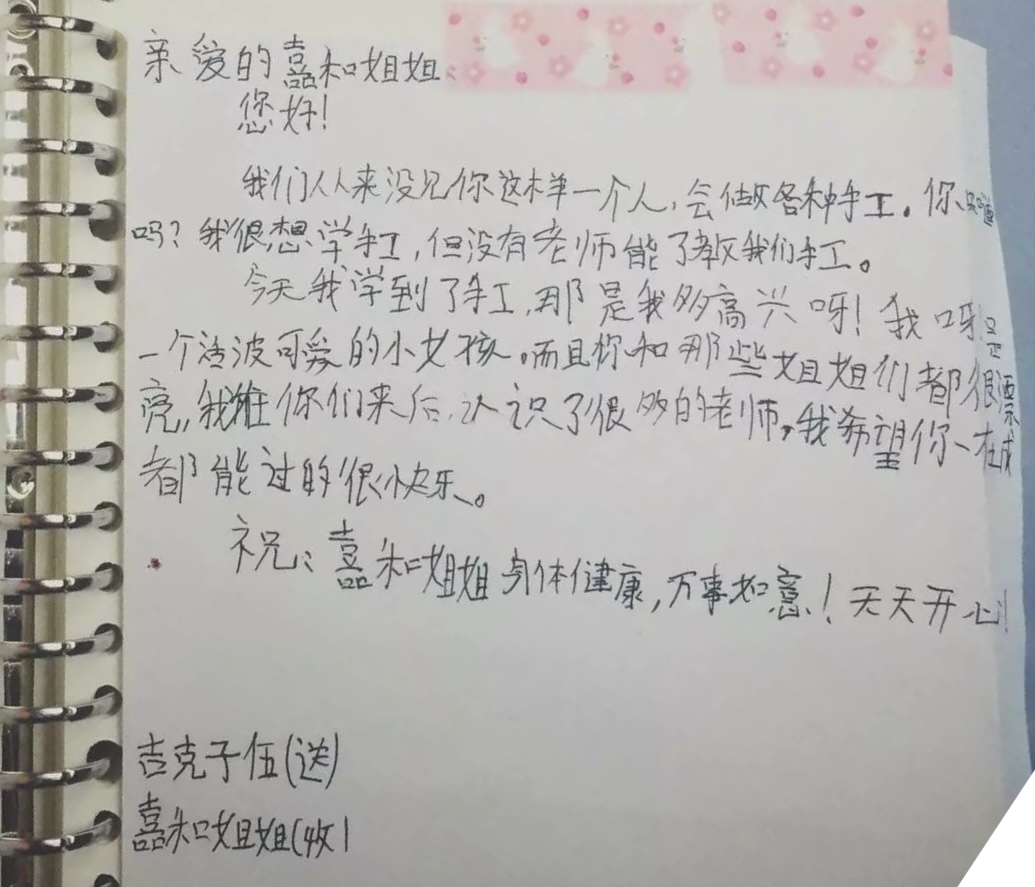 亲爱的嘉和姐姐:
您好!
我们从来没见你这样一个人,会做各种手工。你知道
吗?我很想学手工,但没有老师能了教我们手工。
今天我学到了手工,那是我多高兴呀!我呀!是
一个活波可爱的小女孩。而且你和那些姐姐们都很漂
亮,我谁你们来后,认识了很多的老师,我希望你一在成
都能过的很快乐。
祝:嘉和姐姐身体健康,万事如意!天天开心!
吉克子伍(送)
嘉和姐姐(收)